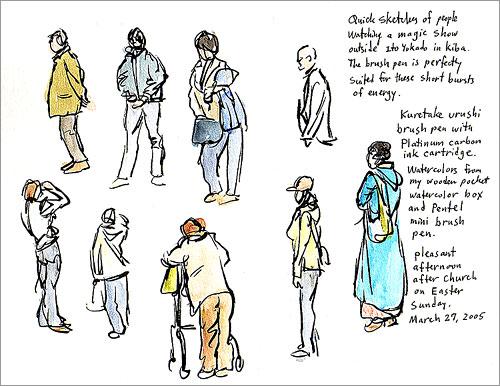 Quick sketches of people
watching a magic show
outside Ito Yokado in Kiba.
The brush pen is perfectly
suited for these short bursts
of energy.
Kuretake urushi
brush pen with
Platinum carbon
ink cartridge.
Watercolors from
my wooden pocket
watercolor box
and Pentel
mini brush
pen.
pleasant
afternoon
after church
on Easter
Sunday.
March 27, 2005